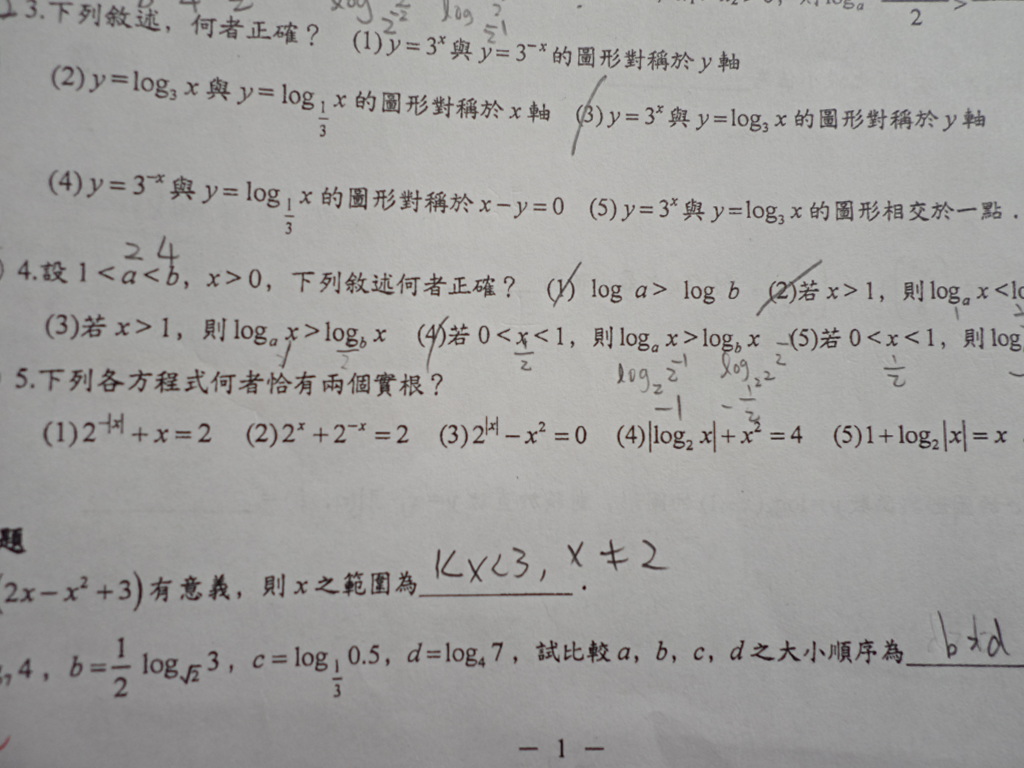 3.下列敘述，何者正確？ (1) y=3^x 與 y=3^{-x} 的圖形對稱於 y 軸
(2) y=log_3 x 與 y=log_{1/3} x 的圖形對稱於 x 軸 (3) y=3^x 與 y=log_3 x 的圖形對稱於 y 軸
(4) y=3^{-x} 與 y=log_{1/3} x 的圖形對稱於 x-y=0 (5) y=3^x 與 y=log_3 x 的圖形相交於一點．
2 4
4.設 1<a<b，x>0，下列敘述何者正確？ (1) log a> log b (2)若 x>1，則 log_a x<
(3)若 x>1，則 log_a x>log_b x (4)若 0<x<1，則 log_a x>log_b x (5)若 0<x<1，則 log
5.下列各方程式何者恰有兩個實根？
(1) 2^{-|x|}+x=2 (2) 2^x+2^{-x}=2 (3) 2^{|x|}-x^2=0 (4) |log_2 x|+x^2=4 (5) 1+log_2|x|=x
題
(2x-x^2+3)有意義，則 x 之範圍為 1<x<3, x≠2 ．
4，b=1/2 log_{√2} 3，c=log_{1/3} 0.5，d=log_4 7，試比較 a，b，c，d 之大小順序為
- 1 -